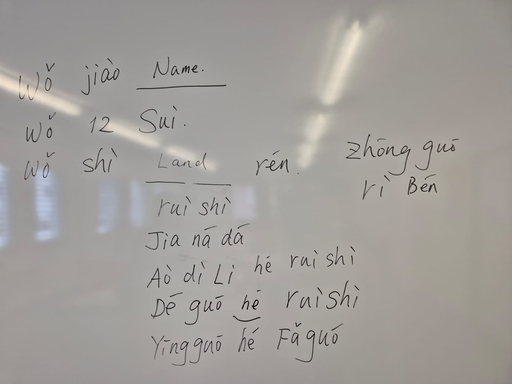 Wǒ jiào Name.
Wǒ 12 Suì.
Wǒ shì Land rén.
Zhōng guō
rì Běn
ruì shì
Jia nā dá
Aò dì Li hé ruì shì
Dé guō hé ruì shì
Yīngguō hé Fǎguó